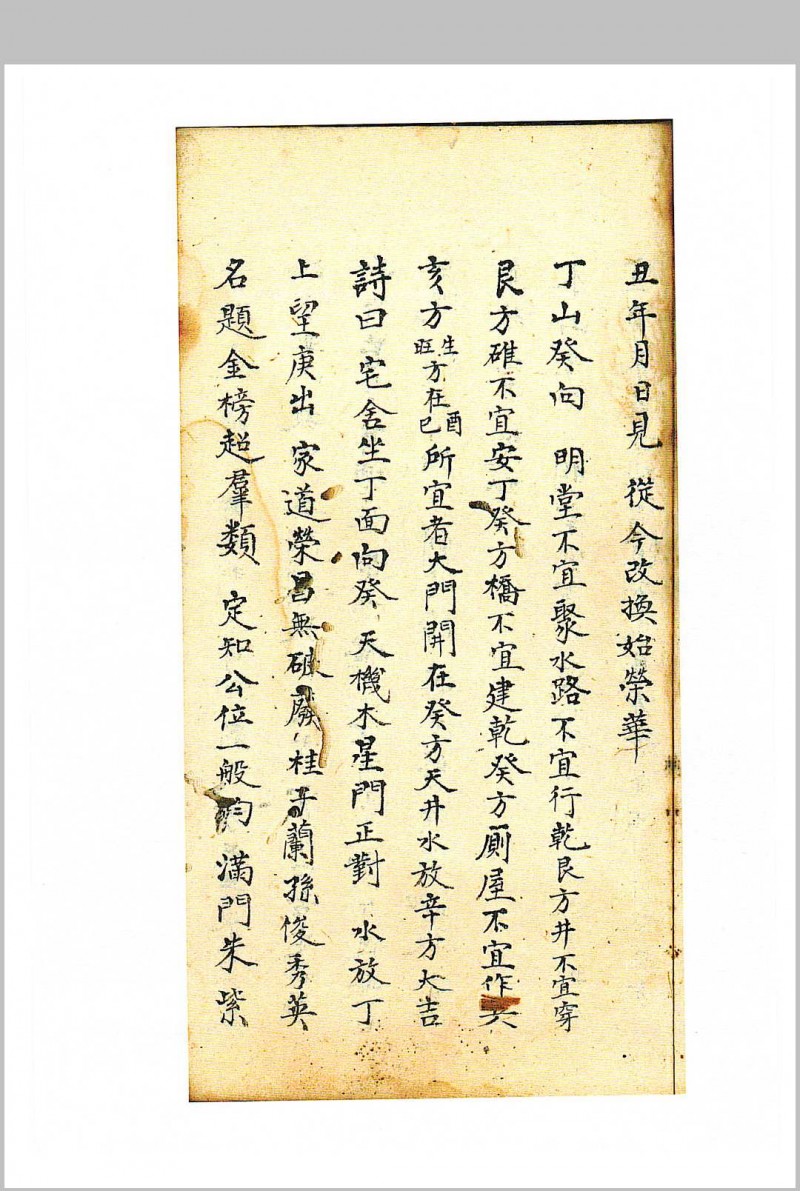 丑年月日見 從今改換始榮華
丁山癸向 明堂不宜聚水路不宜行乾艮方井不宜穿
艮方碓不宜安丁癸方橋不宜建乾癸方厠屋不宜作
亥方生旺方在酉巳所宜者大門開在癸方天井水放辛方大吉
詩曰 宅舍坐丁面向癸 天機木星門正對 水放丁
上望庚出 家道榮昌無破廢 桂子蘭孫俊秀英
名題金榜超羣類 定知公位一般均 滿門朱紫